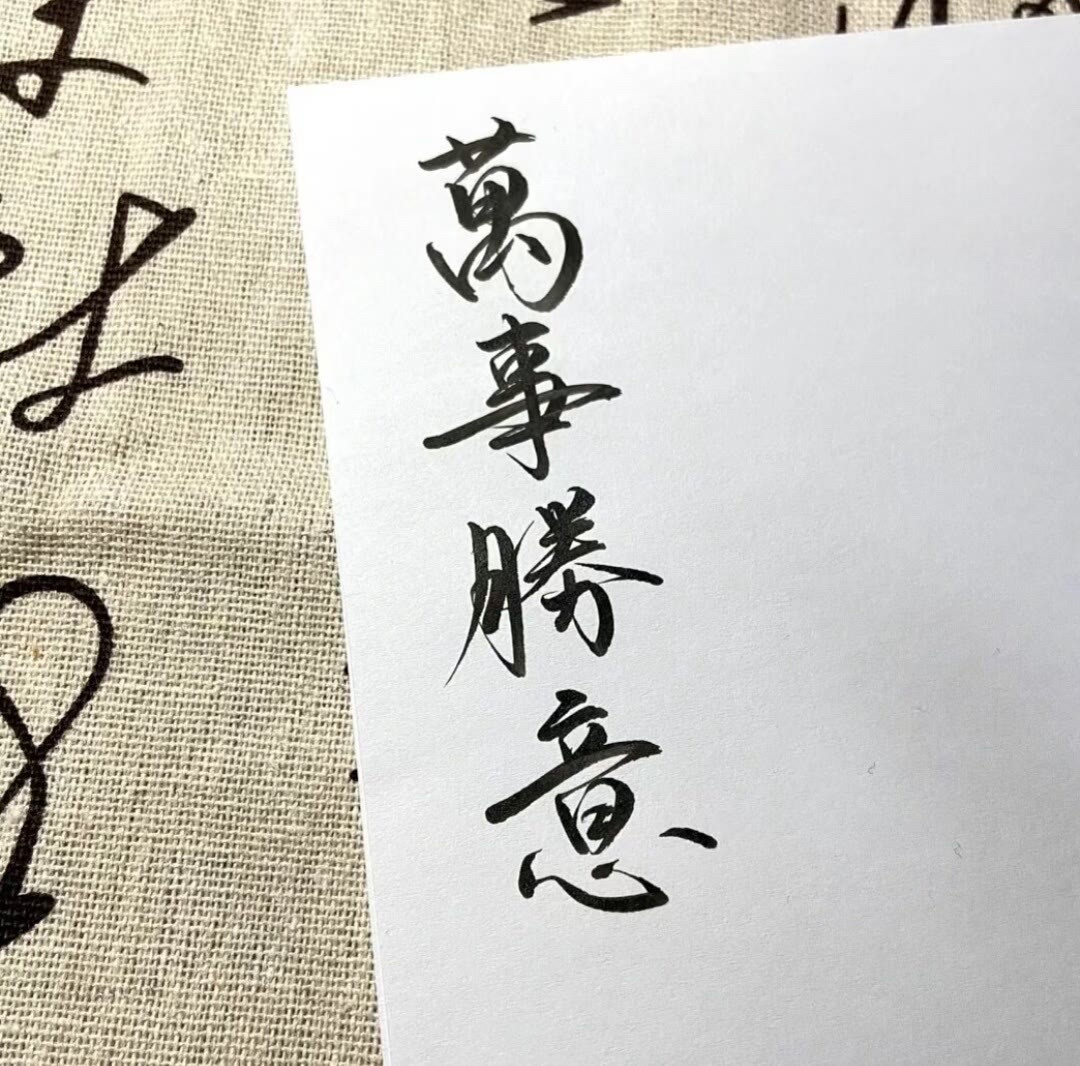 萬事勝意